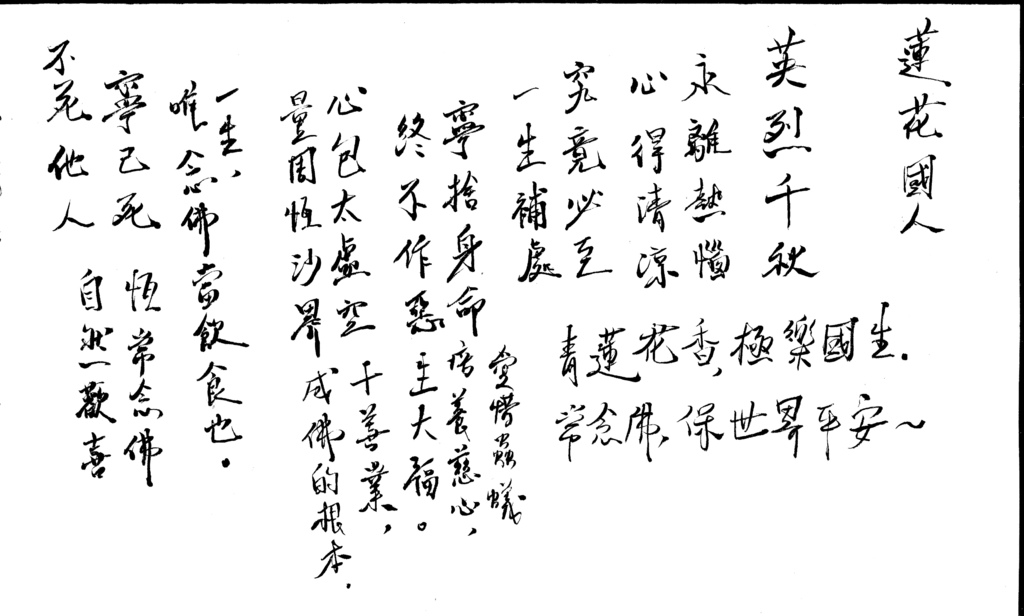 蓮花國人
英烈千秋
永離熱惱
心得清涼
究竟必至
一生補處
青蓮花香,極樂國生.
常念佛,保世界平安~
寧捨身命
終不作惡
愛惜蟲蟻
培養慈心,
生大福。
心包太虛空
量周恆沙界
十善業,
成佛的根本.
一生,
唯念佛當飲食也.
寧己死
不死他人
恆常念佛
自然歡喜